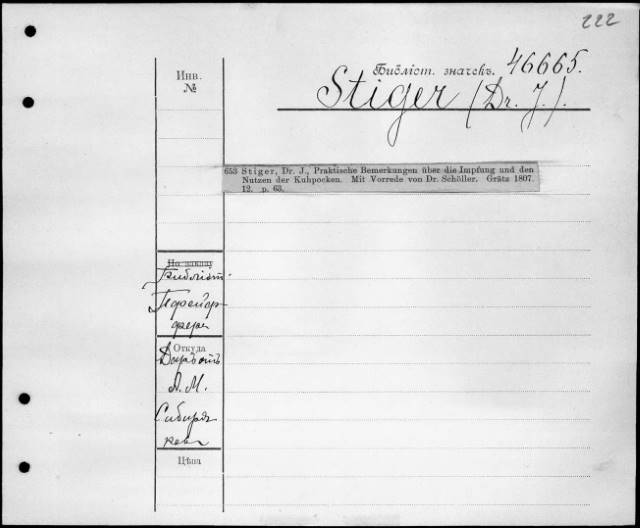 222
Инв.
№
Библіот. значекъ. 46665.
Stiger (Dr. J.).
653 Stiger, Dr. J., Praktische Bemerkungen über die Impfung und den
Nutzen der Kuhpocken. Mit Vorrede von Dr. Schöller. Grätz 1807.
12. p. 63.
По заказу
Библіот.
Пфейф
фера
Откуда
Даръ отъ
А. М.
Сибиря
кова
Цѣна